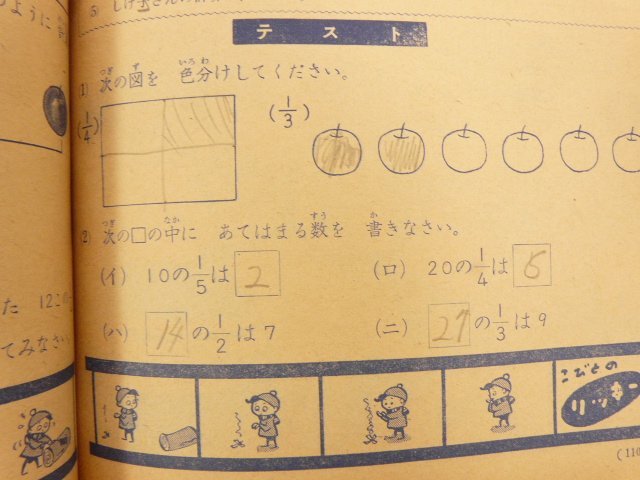 テスト
(1) 次の図を 色分けしてください。
(1/4) (1/3)
(2) 次の□の中に あてはまる数を 書きなさい。
(イ) 10の1/5は 2
(ロ) 20の1/4は 5
(ハ) 14 の1/2は7
(ニ) 27 の1/3は9
た 12この
てみなさい
こびとの
リッキー
(110